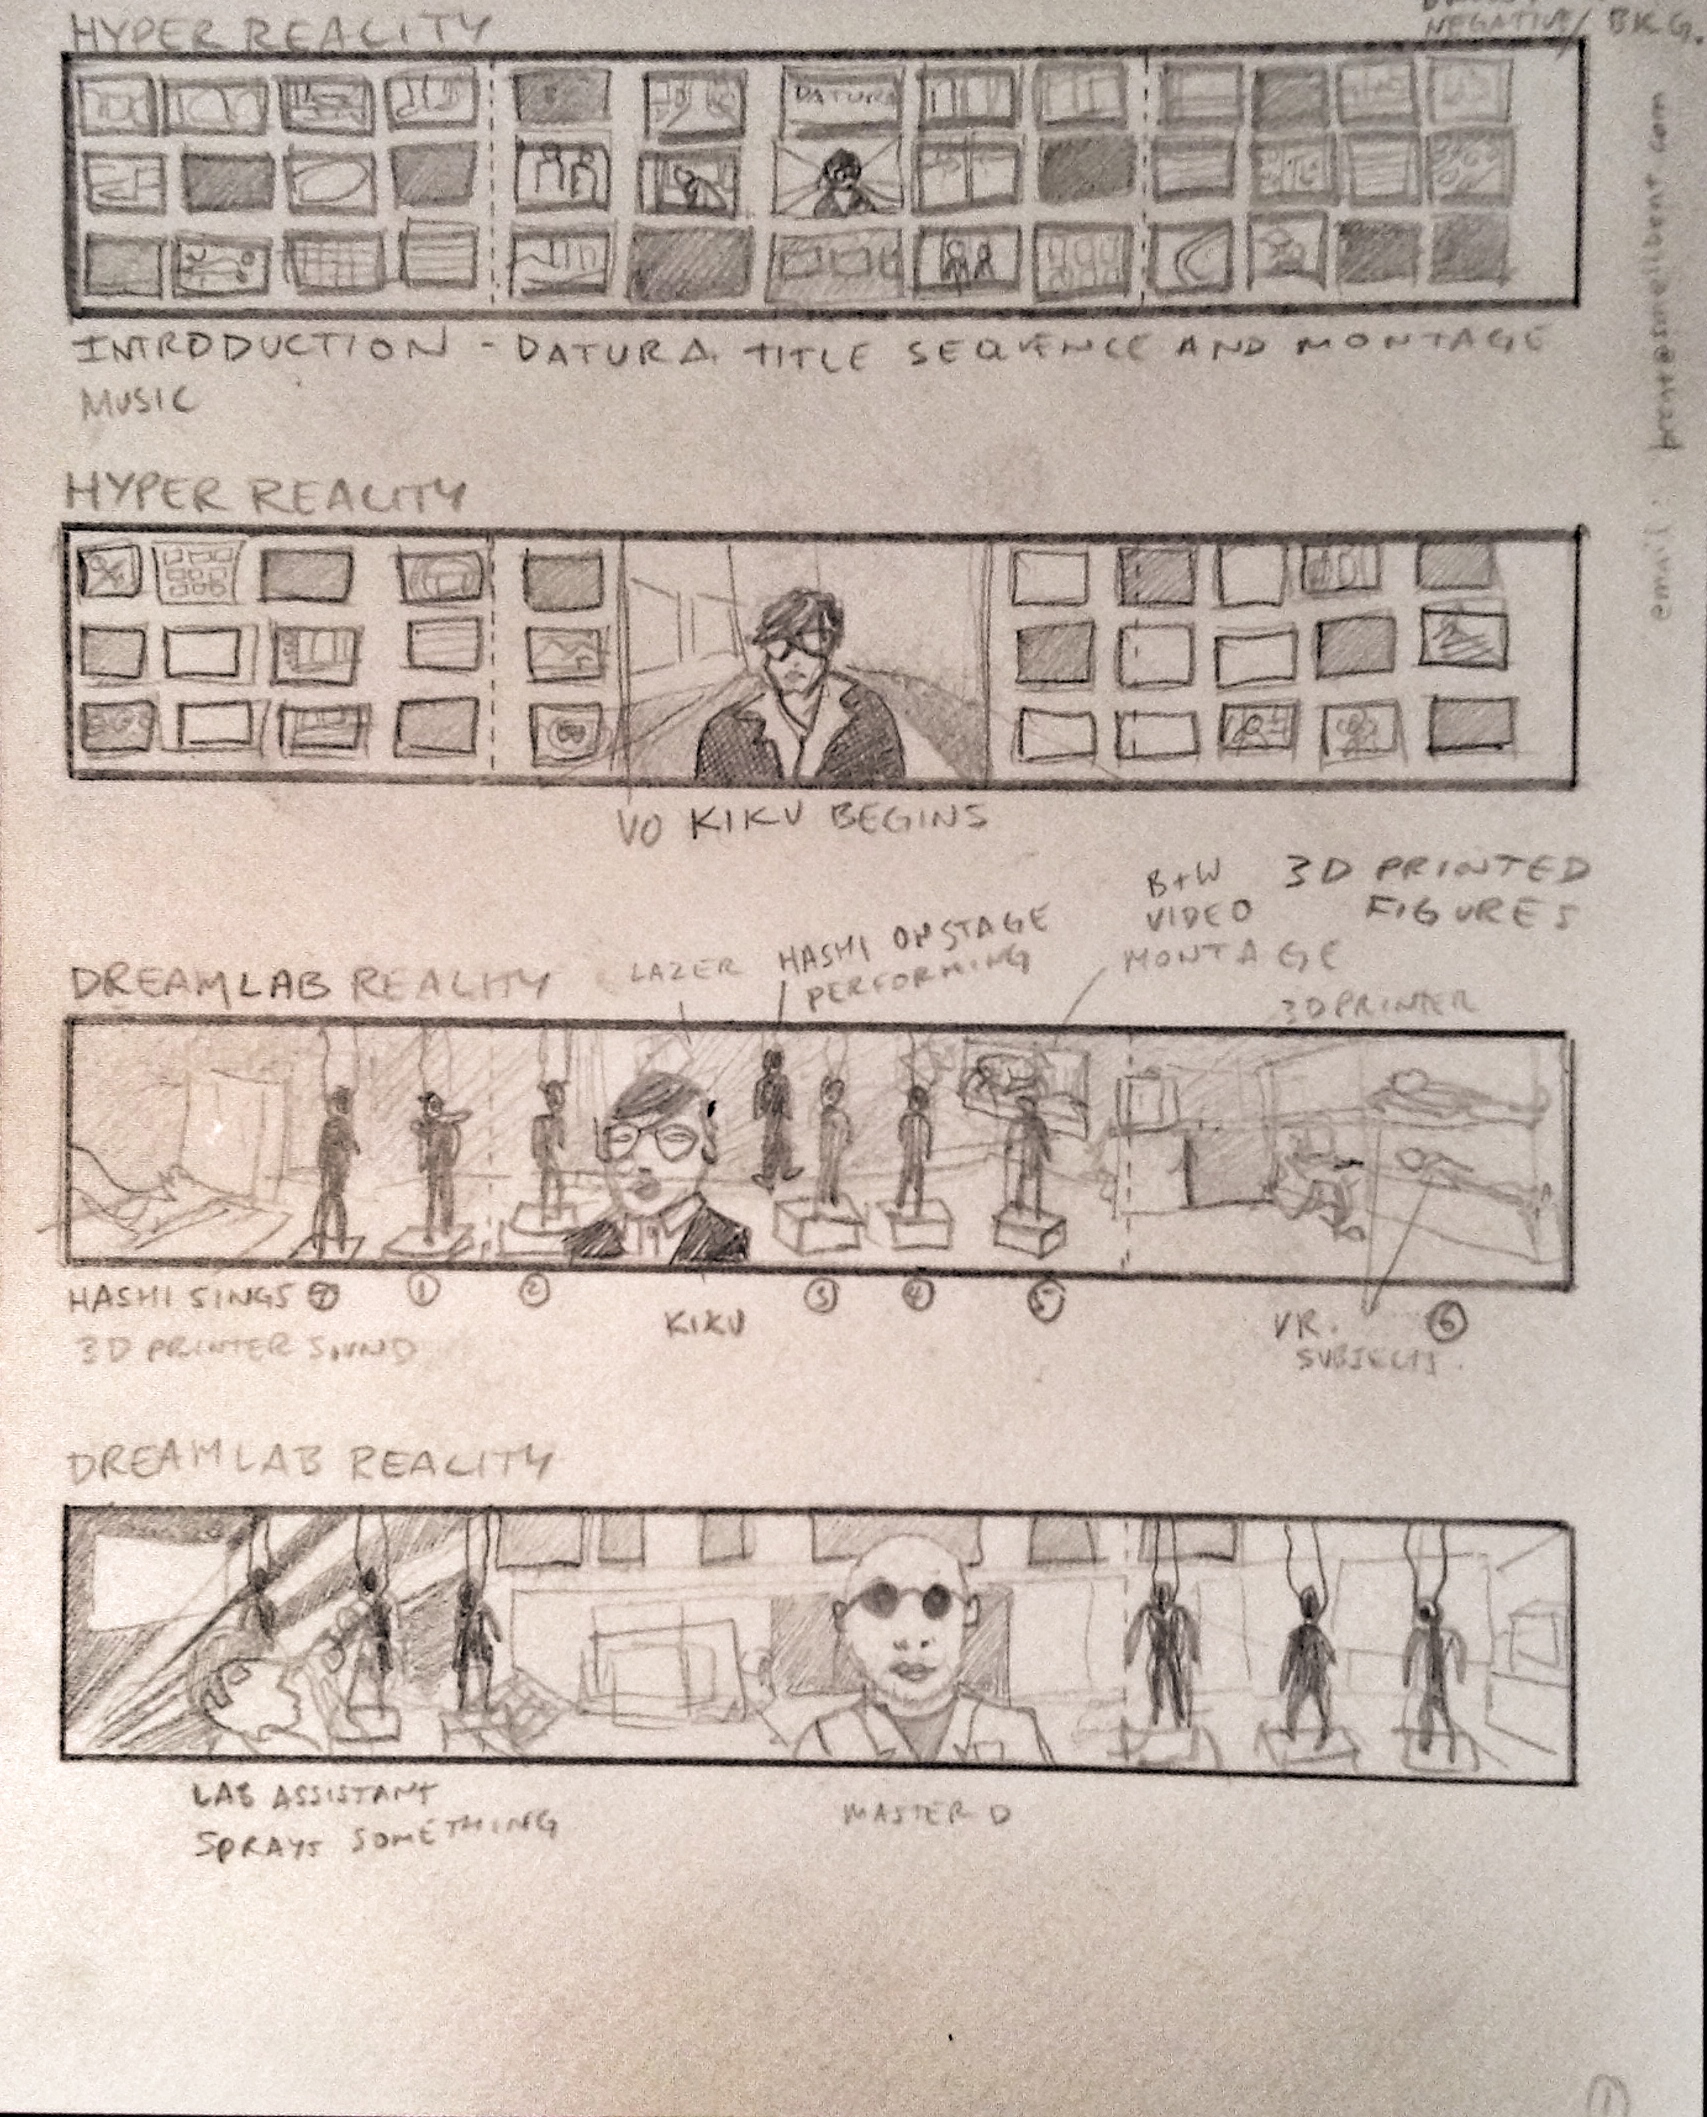 HYPER REALITY
NEGATIVE/ BKG.
DATURA
INTRODUCTION - DATURA TITLE SEQUENCE AND MONTAGE
MUSIC
HYPER REALITY
VO KIKU BEGINS
B+W
VIDEO
MONTAGE
3D PRINTED
FIGURES
DREAMLAB REALITY
LAZER
HASHI ONSTAGE
PERFORMING
3D PRINTER
HASHI SINGS 7 1 2 3 4 5
3D PRINTER SOUND
KIKU
VR. 6
SUBJECTS.
DREAMLAB REALITY
LAB ASSISTANT
SPRAYS SOMETHING
MASTER D
1